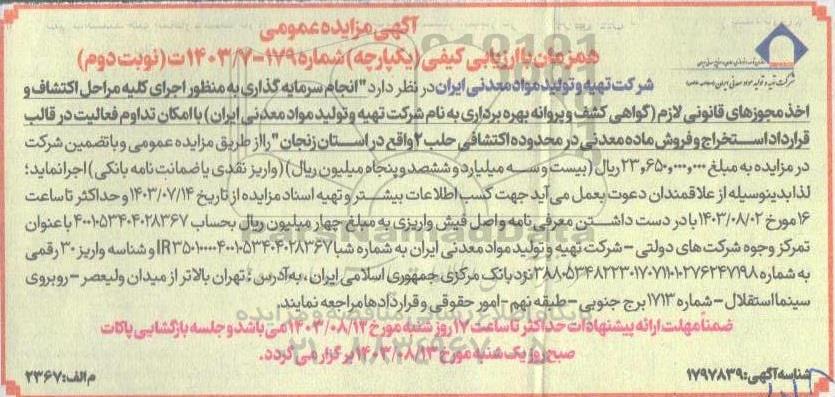 آگهی مزایده عمومی
همزمان با ارزیابی کیفی (یکپارچه) شماره ۱۷۹-۱۴۰۳/۷ت (نوبت دوم)
شرکت تهیه و تولید مواد معدنی ایران در نظر دارد "انجام سرمایه گذاری به منظور اجرای کلیه مراحل اکتشاف و
اخذ مجوزهای قانونی لازم (گواهی کشف و پروانه بهره برداری به نام شرکت تهیه و تولید مواد معدنی ایران) با امکان تداوم فعالیت در قالب
قرارداد استخراج و فروش ماده معدنی در محدوده اکتشافی حلب ۲ واقع در استان زنجان" را از طریق مزایده عمومی و با تضمین شرکت
در مزایده به مبلغ ۲۳,۶۵۰,۰۰۰,۰۰۰ ریال (بیست و سه میلیارد و ششصد و پنجاه میلیون ریال) (واریز نقدی یا ضمانت نامه بانکی) اجرا نماید؛
لذا بدینوسیله از علاقمندان دعوت بعمل می آید جهت کسب اطلاعات بیشتر و تهیه اسناد مزایده از تاریخ ۱۴۰۳/۰۷/۱۴ و حداکثر تا ساعت
۱۶ مورخ ۱۴۰۳/۰۸/۰۲ با در دست داشتن معرفی نامه و اصل فیش واریزی به مبلغ چهار میلیون ریال بحساب ۴۰۰۱۰۵۳۴۰۴۰۲۸۳۶۷ با عنوان
تمرکز وجوه شرکت های دولتی – شرکت تهیه و تولید مواد معدنی ایران به شماره شبا و شناسه واریز ۳۰ رقمی
به شماره نزد بانک مرکزی جمهوری اسلامی ایران، به آدرس: تهران بالاتر از میدان ولیعصر – روبروی
سینما استقلال – شماره ۱۷۱۳ برج جنوبی – طبقه نهم – امور حقوقی و قراردادها مراجعه نمایند.
ضمناً مهلت ارائه پیشنهادات حداکثر تا ساعت ۱۷ روز شنبه مورخ ۱۴۰۳/۰۸/۱۲ می باشد و جلسه بازگشایی پاکات
صبح روز یک شنبه مورخ ۱۴۰۳/۰۸/۱۳ برگزار می گردد.
شناسه آگهی: ۱۷۹۷۸۳۹
م الف: ۲۳۶۷